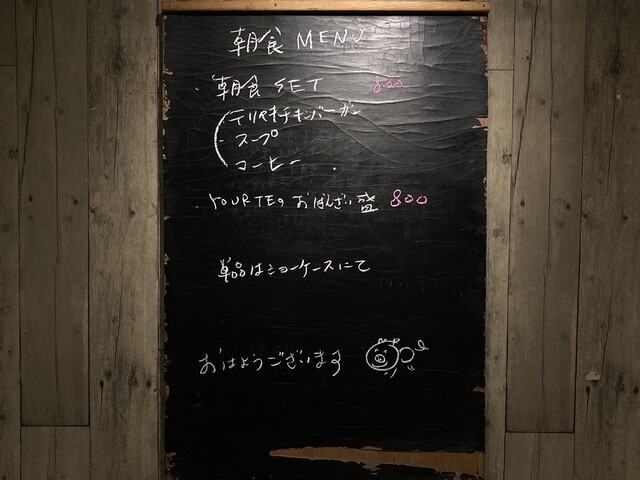 朝食 MENU
・朝食 SET 800
テリヤキチキンバーガー
スープ
コーヒー
・YOURTEの おばんざい盛 800
単品はショーケースにて
おはようございます